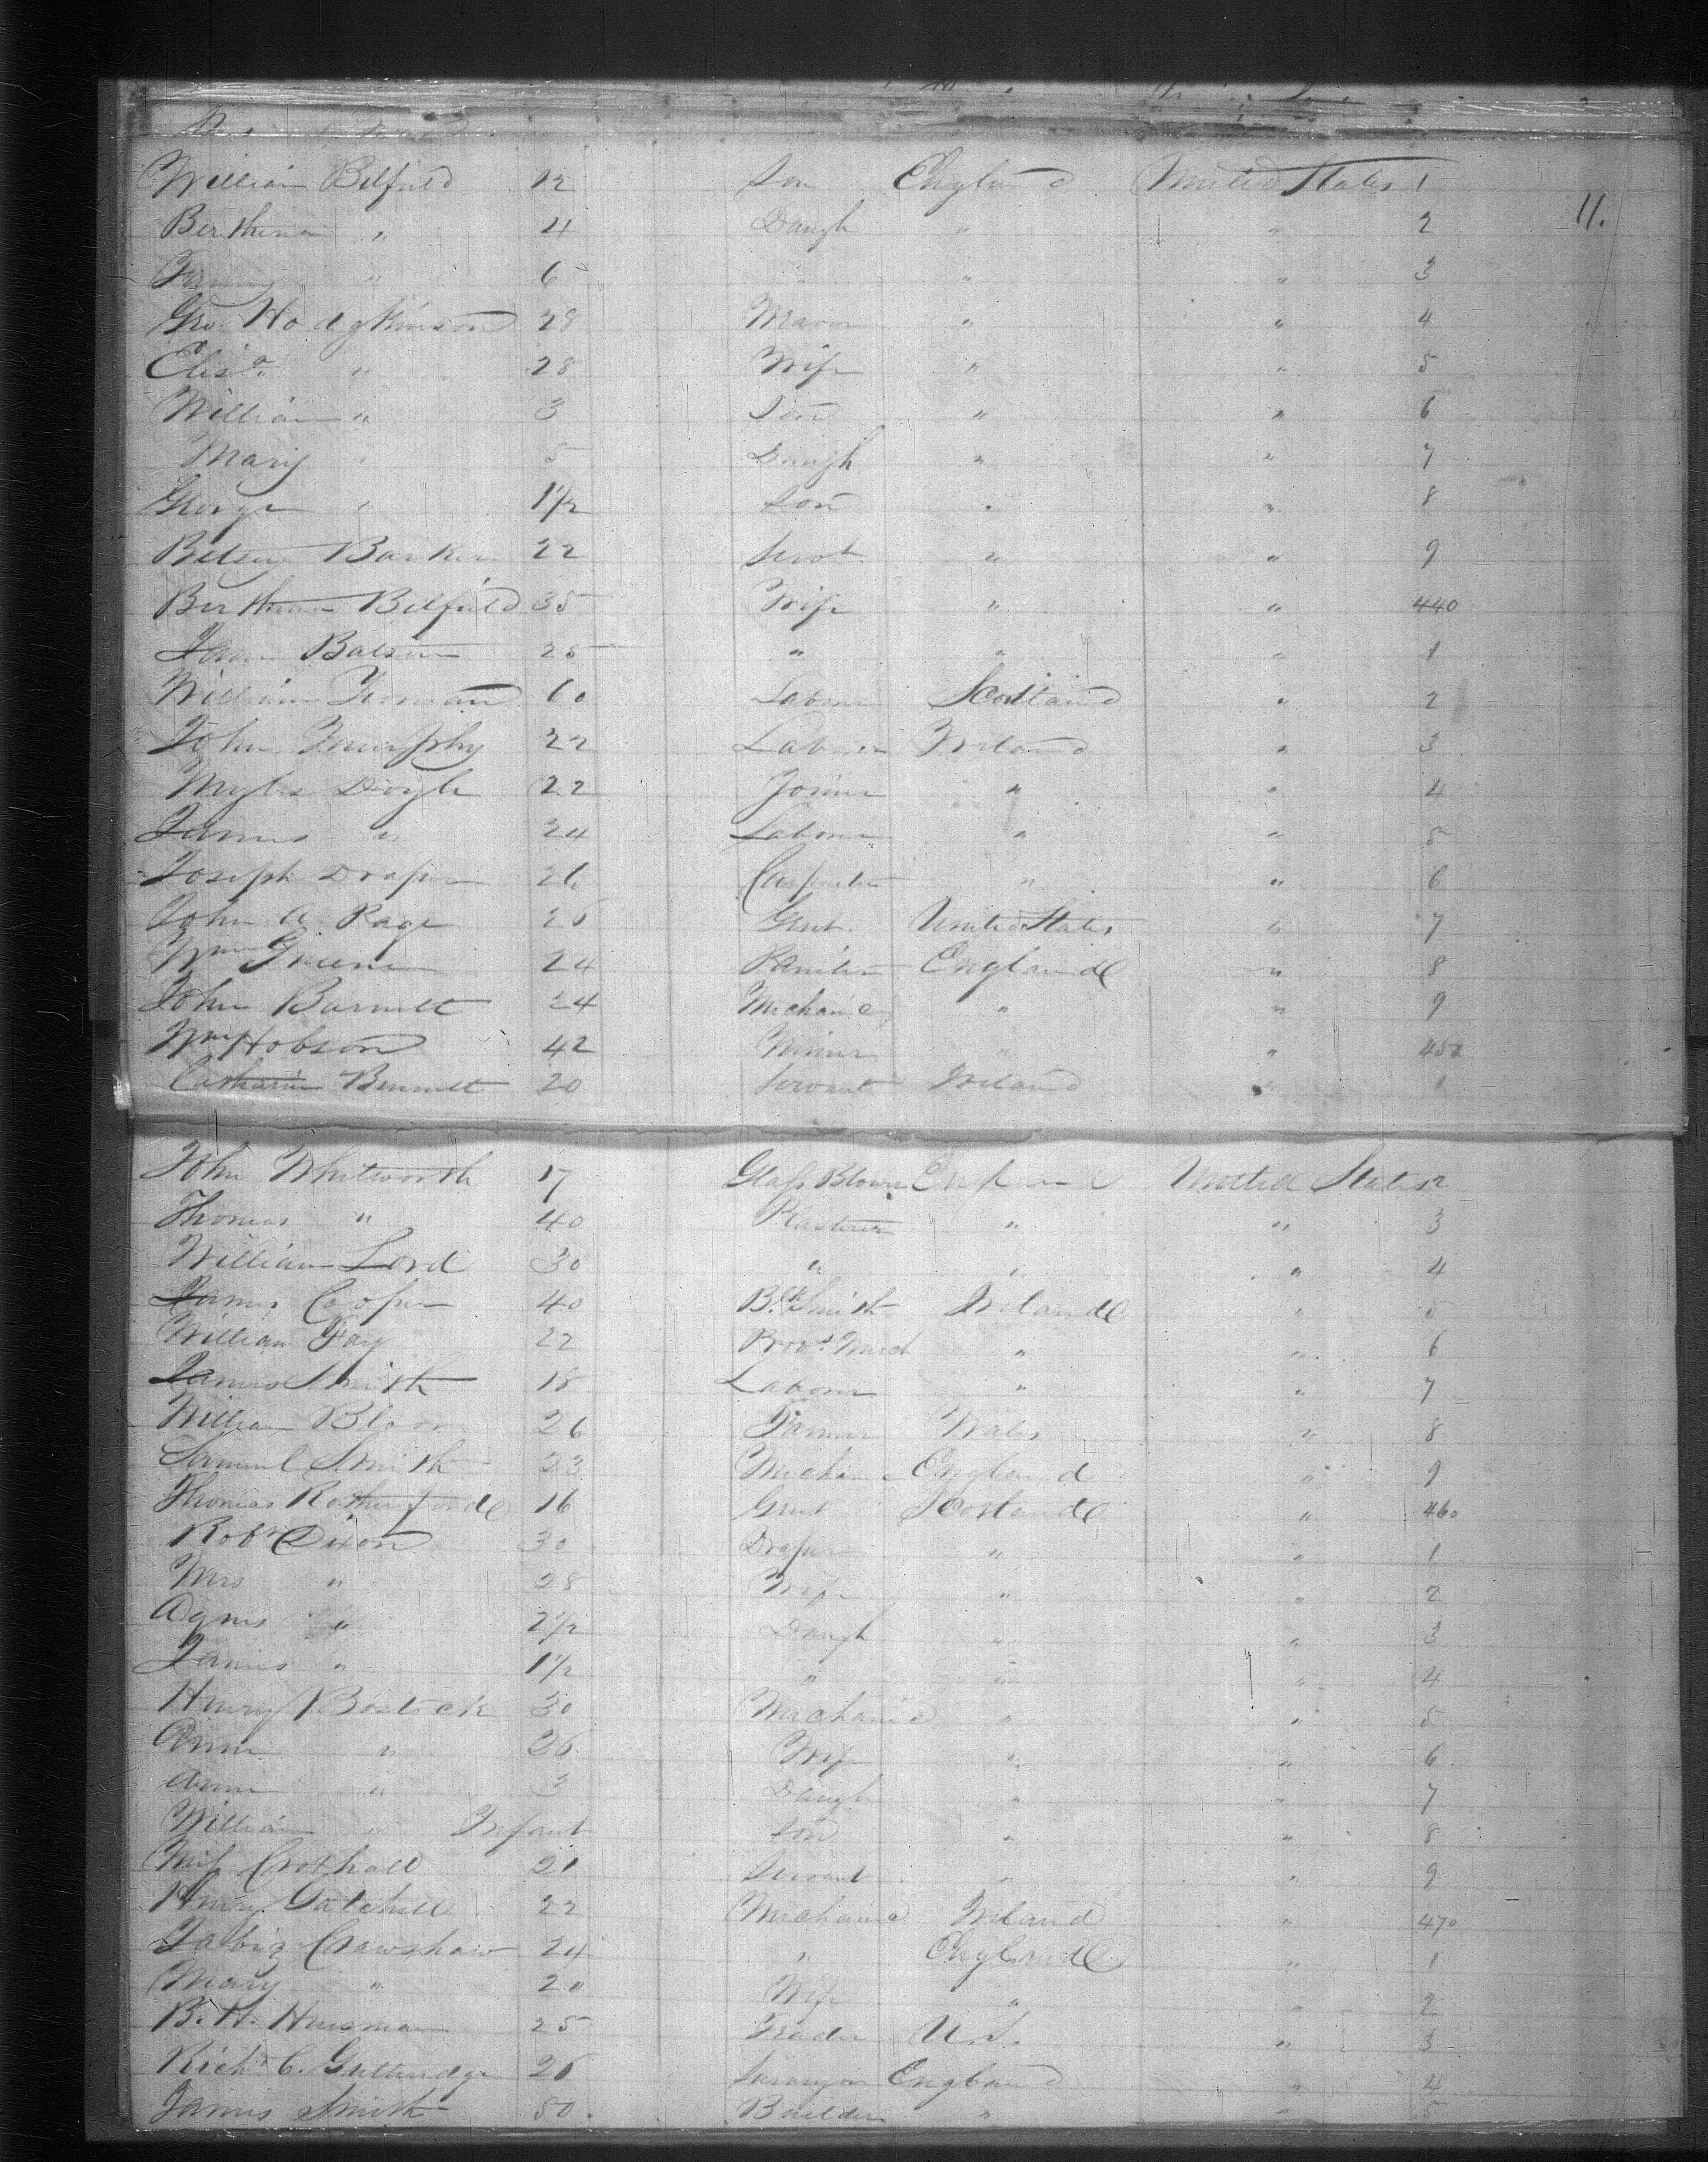 William Bilfield 12 Son England United States 1
11.
Berthena " 4 Daugh " " 2
Fanny " 6 " " " 3
Geo. Hodgkinson 28 Mason " " 4
Elisa " 28 Wife " " 5
William " 3 Son " " 6
Mary " 5 Daugh " " 7
George " 1 1/2 Son " " 8
Betsey Barker 22 Servt " " 9
Berthena Bilfield 35 Wife " " 440
Batson 25 " " " 1
William 60 Labour Scotland " 2
John Murphy 22 Labour Ireland " 3
Myles Doyle 22 Joiner " " 4
James " 24 Labour " " 5
Joseph Draper 26 Carpenter " " 6
John A Page 26 Gent. United States " 7
Wm Greene 24 Painter England " 8
John Barnett 24 Mechanic " " 9
Wm Hobson 42 Miner " " 450
Catharin Bennett 20 Servant Ireland " 1
John Whitworth 17 Glass Blower England United States 2
Thomas " 40 Plasterer " " 3
William Lord 30 " " " 4
James Cooper 40 Bk Smith Ireland " 5
William Fay 22 Provs Merch " " 6
James Smith 18 Labour " " 7
William Bloor 26 Farmer Wales " 8
Samuel Smith 23 Mechanic England " 9
Thomas Rotherforde 16 Gent Scotland " 460
Robt Dixon 30 Draper " " 1
Mrs " 28 Wife " " 2
Agnes " 2 1/2 Daugh " " 3
James " 1 1/2 " " " 4
Henry Bostock 30 Mechanic " " 5
Anne " 26 Wife " " 6
Anne " 3 Daugh " " 7
William " Infant Son " " 8
Miss Crothall 21 Servant " " 9
Henry Gatchell 22 Mechanic Ireland " 470
Jabiz Crawshaw 24 " England " 1
Mary " 20 Wife " " 2
B. H. Huesman 25 Trader U.S. " 3
Richd C. Gutteridge 26 Surveyor England " 4
James Smith 50 Builder " " 5